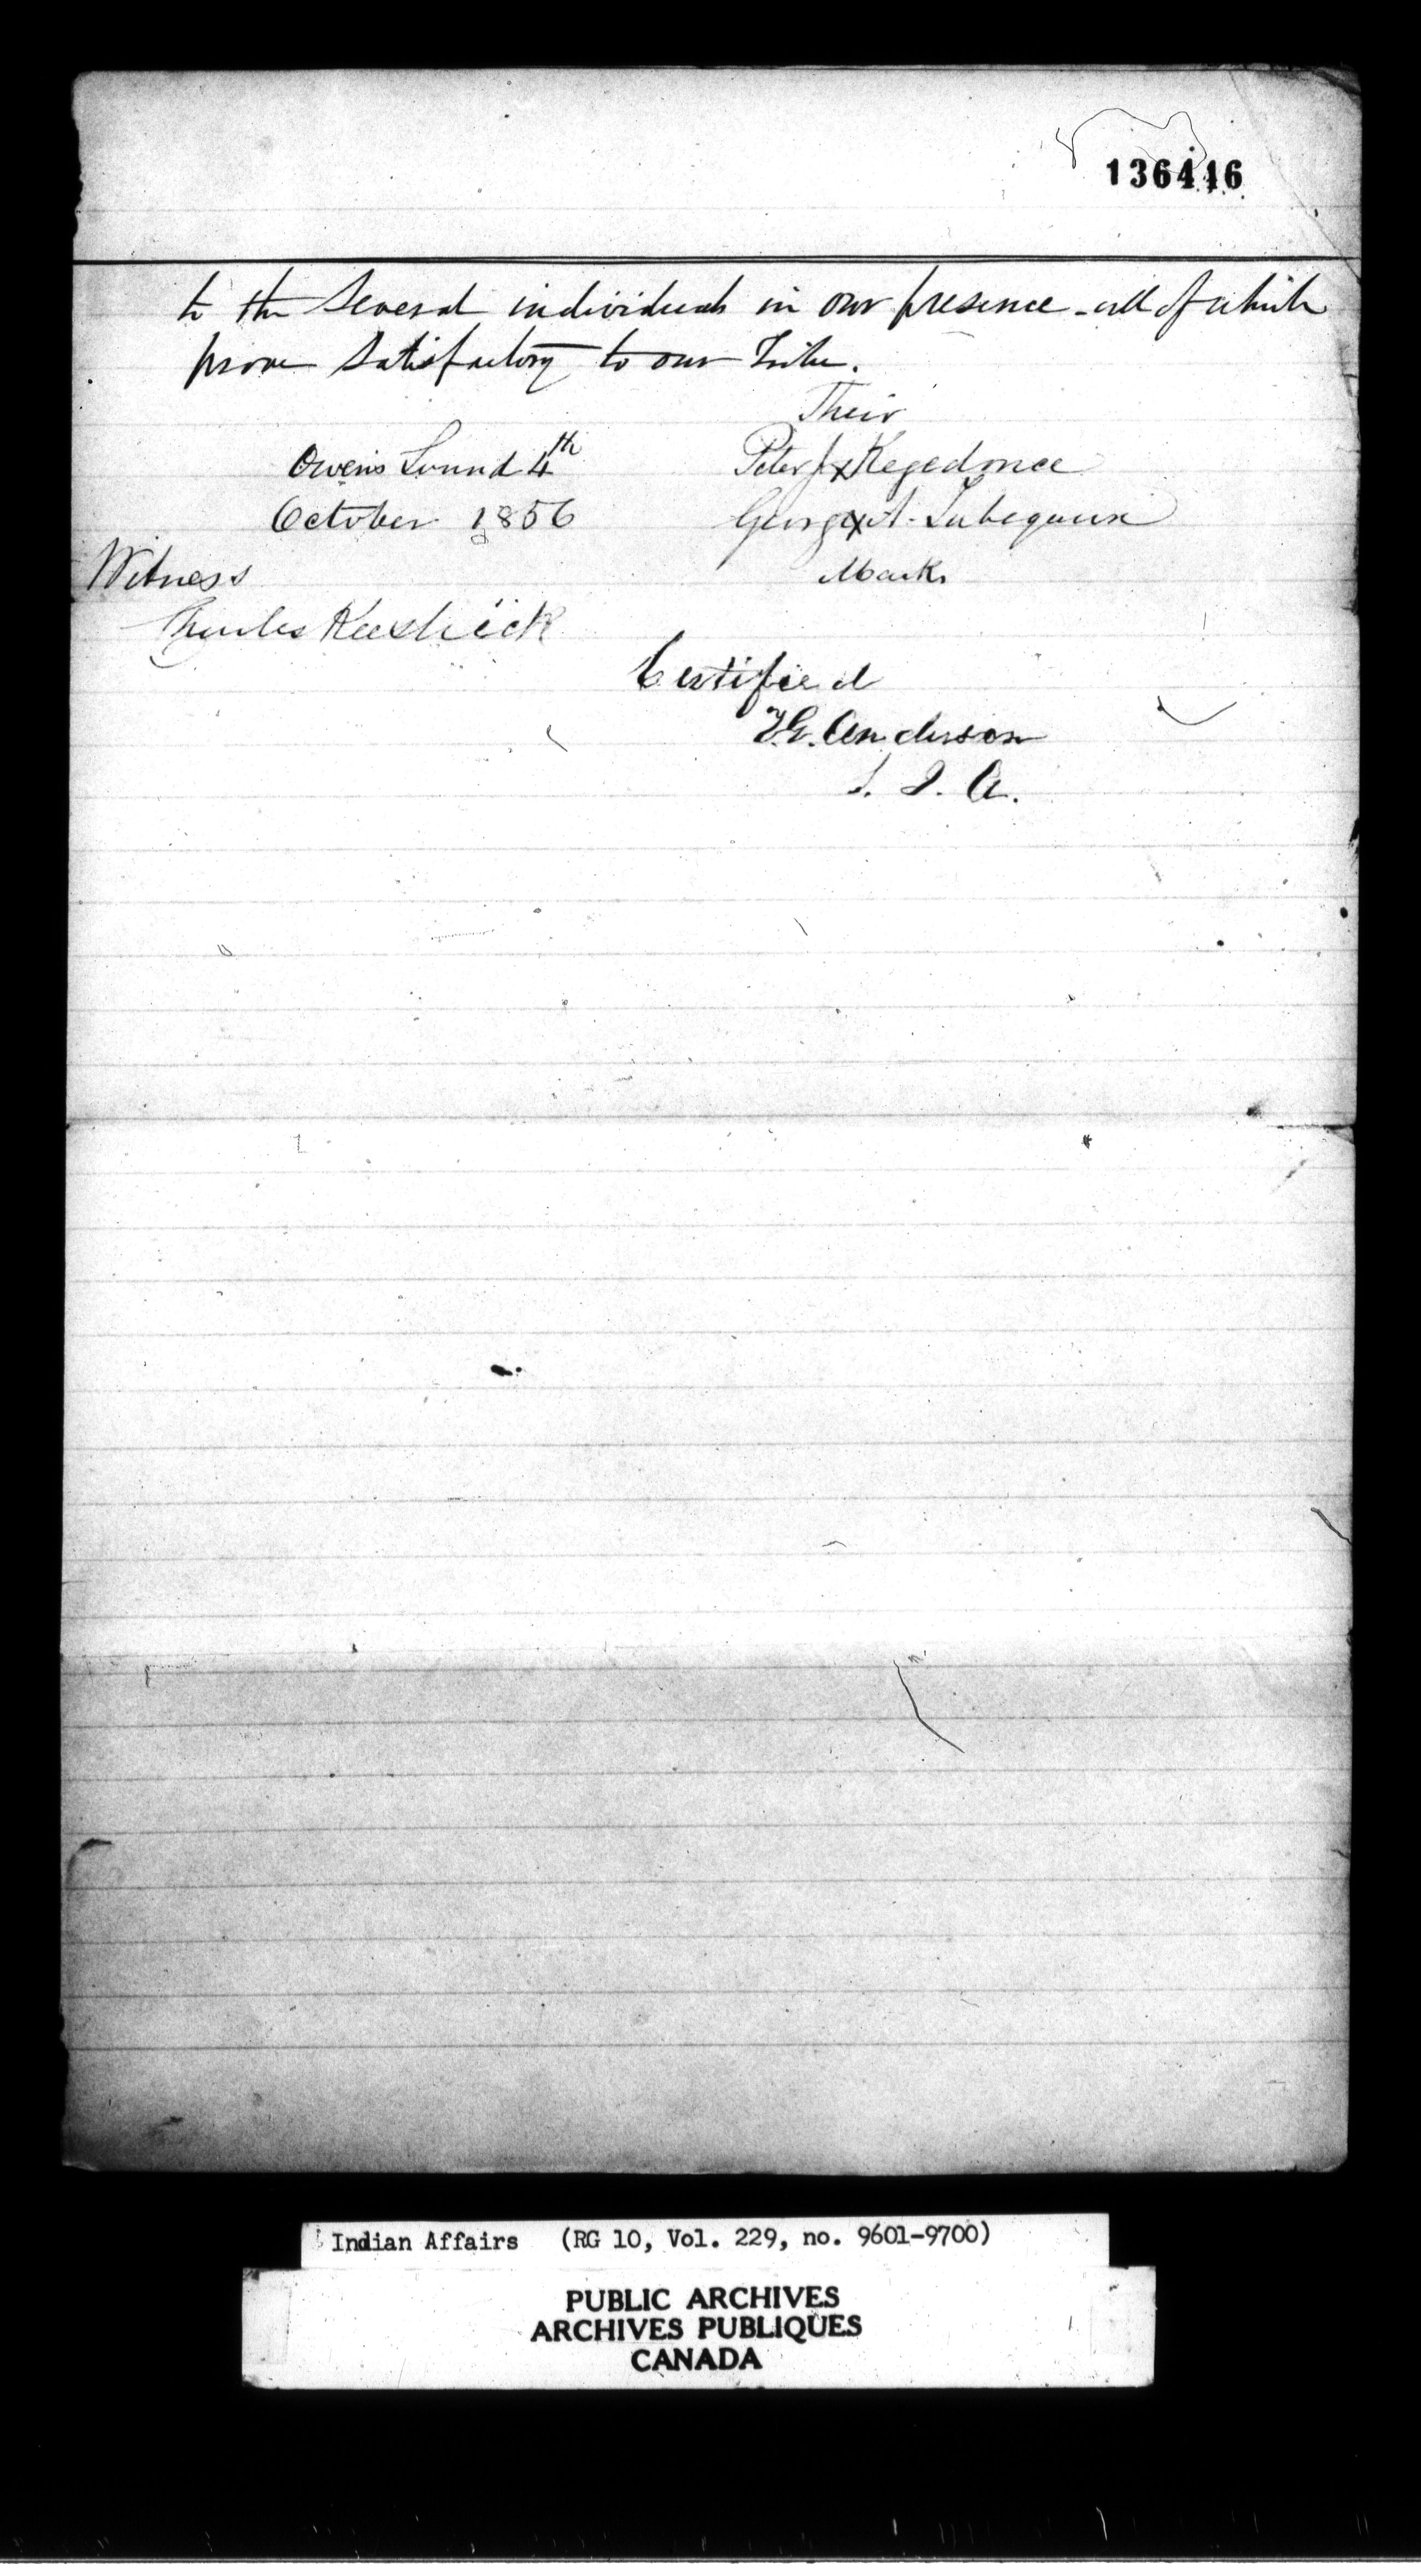 136446
to the several individuals in our presence - all of which
prove satisfactory to our Tribe.
Their
Owens Sound 4th
Peter J x Kegedonce
October 1856
George x A. Sabequun
Marks
Witness
Charles Keeshick
Certified
T.G. Anderson
S. I. A.
Indian Affairs (RG 10, Vol. 229, no. 9601-9700)
PUBLIC ARCHIVES
ARCHIVES PUBLIQUES
CANADA